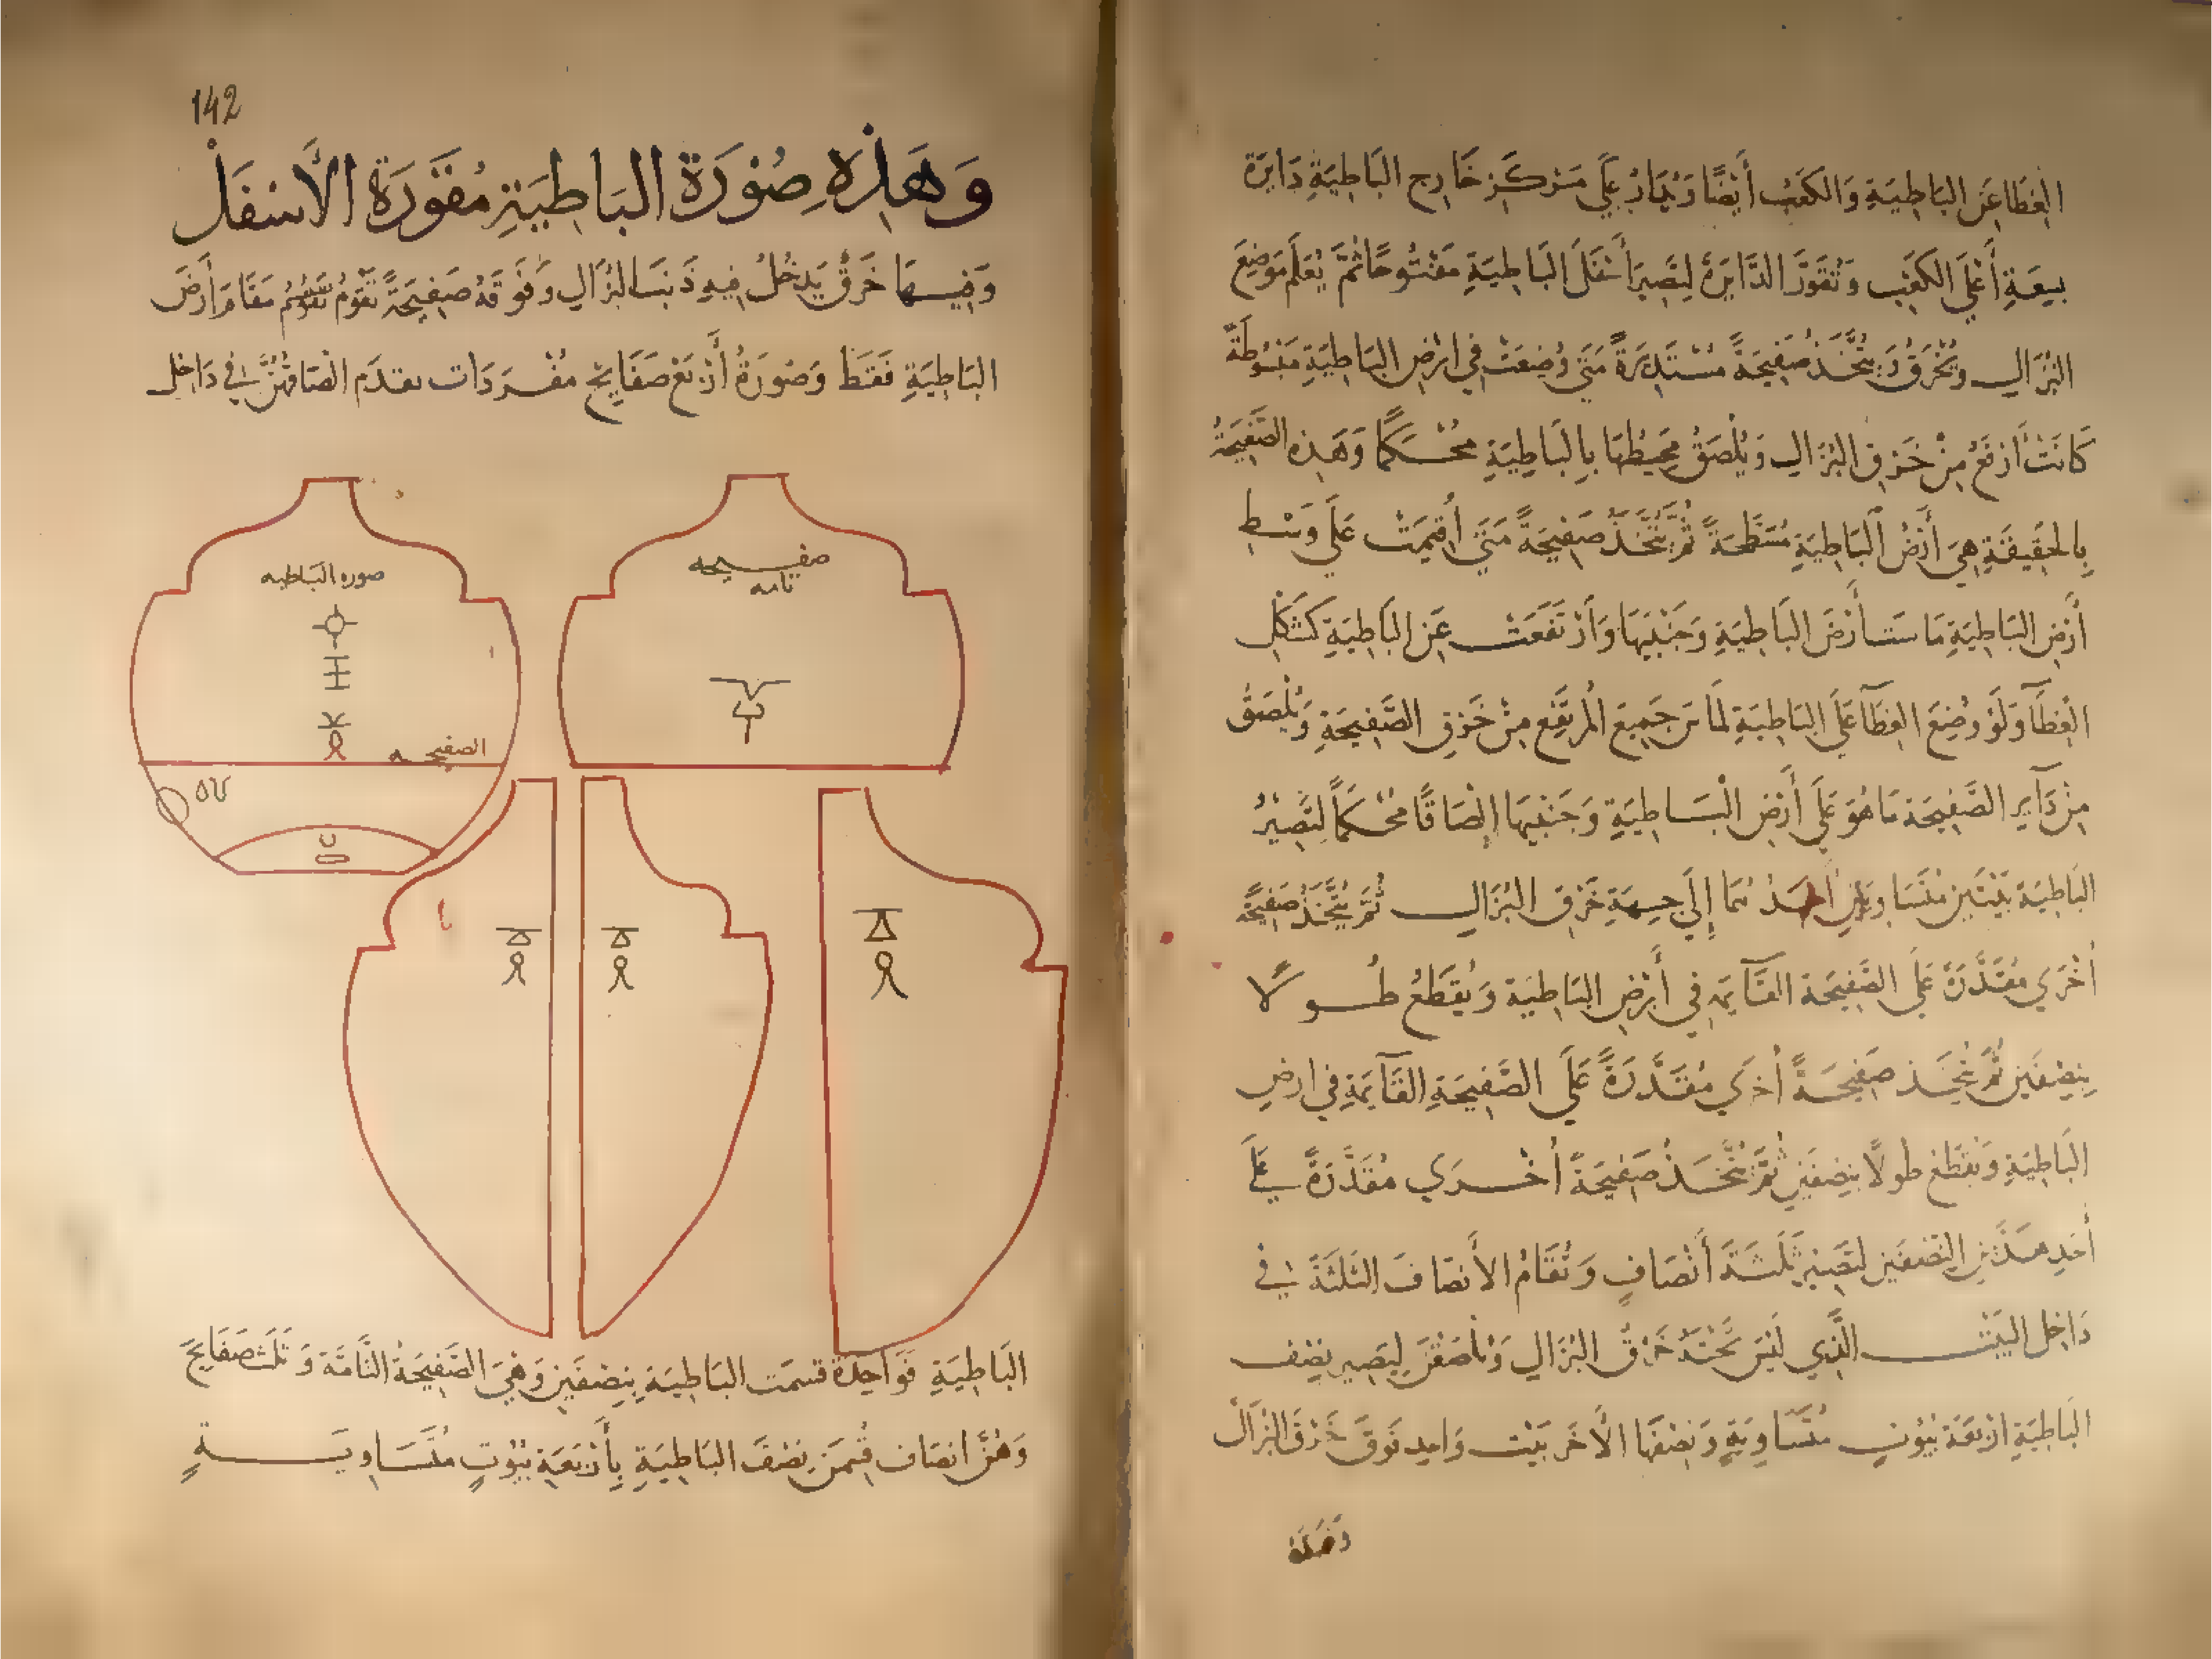 الغطا عن الباطية والكعب أيضا ويدار على مركز خارج الباطية دايرة
بيعة أعلى الكعب وتقور الدايرة ليصير أسفل الباطية مفتوحا ثم يعلم موضع
البزال ويخرق ويتخذ صفيحة مستديرة متى وضعت في ارض الباطية مبسوطة
كانت أرفع من خرق البزال ويلصق محيطها بالباطية محكما وهذه الصفيحة
بالحقيقة هي أرض الباطية مسطحة ثم يتخذ صفيحة متى أقيمت على وسط
أرض الباطية ماست أرض الباطية وجنبيها وارتفعت عن الباطية كشكل
الغطآ ولو وضع الغطآ على الباطية لماس جميع المرتفع من حرف الصفيحة ويلصق
من دآير الصفيحة ما هو على أرض الباطية وجنبيها إلصاقا محكما لتصير
الباطية بيتين متساويين أحدهما إلى جهة خرق البزال ثم يتخذ صفيحة
أخرى مقدرة على الصفيحة القآيمة في أرض الباطية ويقطع طولا
بنصفين ثم يتخذ صفيحة أخرى مقدرة على الصفيحة القآيمة في ارض
الباطية وتقطع طولا بنصفين ثم يتخذ صفيحة أخرى مقدرة على
أحد هذين النصفين لتصير ثلثة أنصاف وتقام الأنصاف الثلثة في
داخل البيت الذي ليس تحته خرق البزال ويلصقن ليصير نصف
الباطية اربعة بيوت متساوية ونصفها الآخر بيت واحد فوق خرق البزال
142
وهذه صورة الباطية مقورة الأسفل
وفيها خرق يدخل فيه ذنب البزال وفوقه صفيحة تقوم تقوم مقام أرض
الباطية فقط وصورة أربع صفايح مفردات تقدم الصاقهن في داخل
صورة الباطيه
صفيحه
تامه
الصفيحه
الباطية فواحدة قسمت الباطية بنصفين وهي الصفيحة التامة وثلث صفايح
وهن انصاف قسمن نصف الباطية بأربعة بيوت متساوية